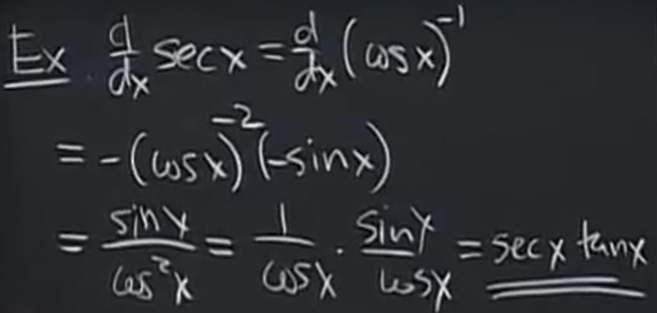 Ex d/dx sec x = d/dx (cos x)^-1
= -(cos x)^-2 (-sin x)
= sin x / cos^2 x = 1 / cos x · sin x / cos x = sec x tan x